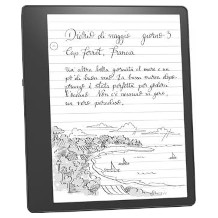 Diario di viaggio giorno 3
Cap Ferret, Francia
Un'altra bella giornata al mare e un
po' di buon vino. La buca nurica dopo
pranzo è stata perfetta per godersi
l'oceano. Non c'è nessuno in giro,
un vero paradiso.